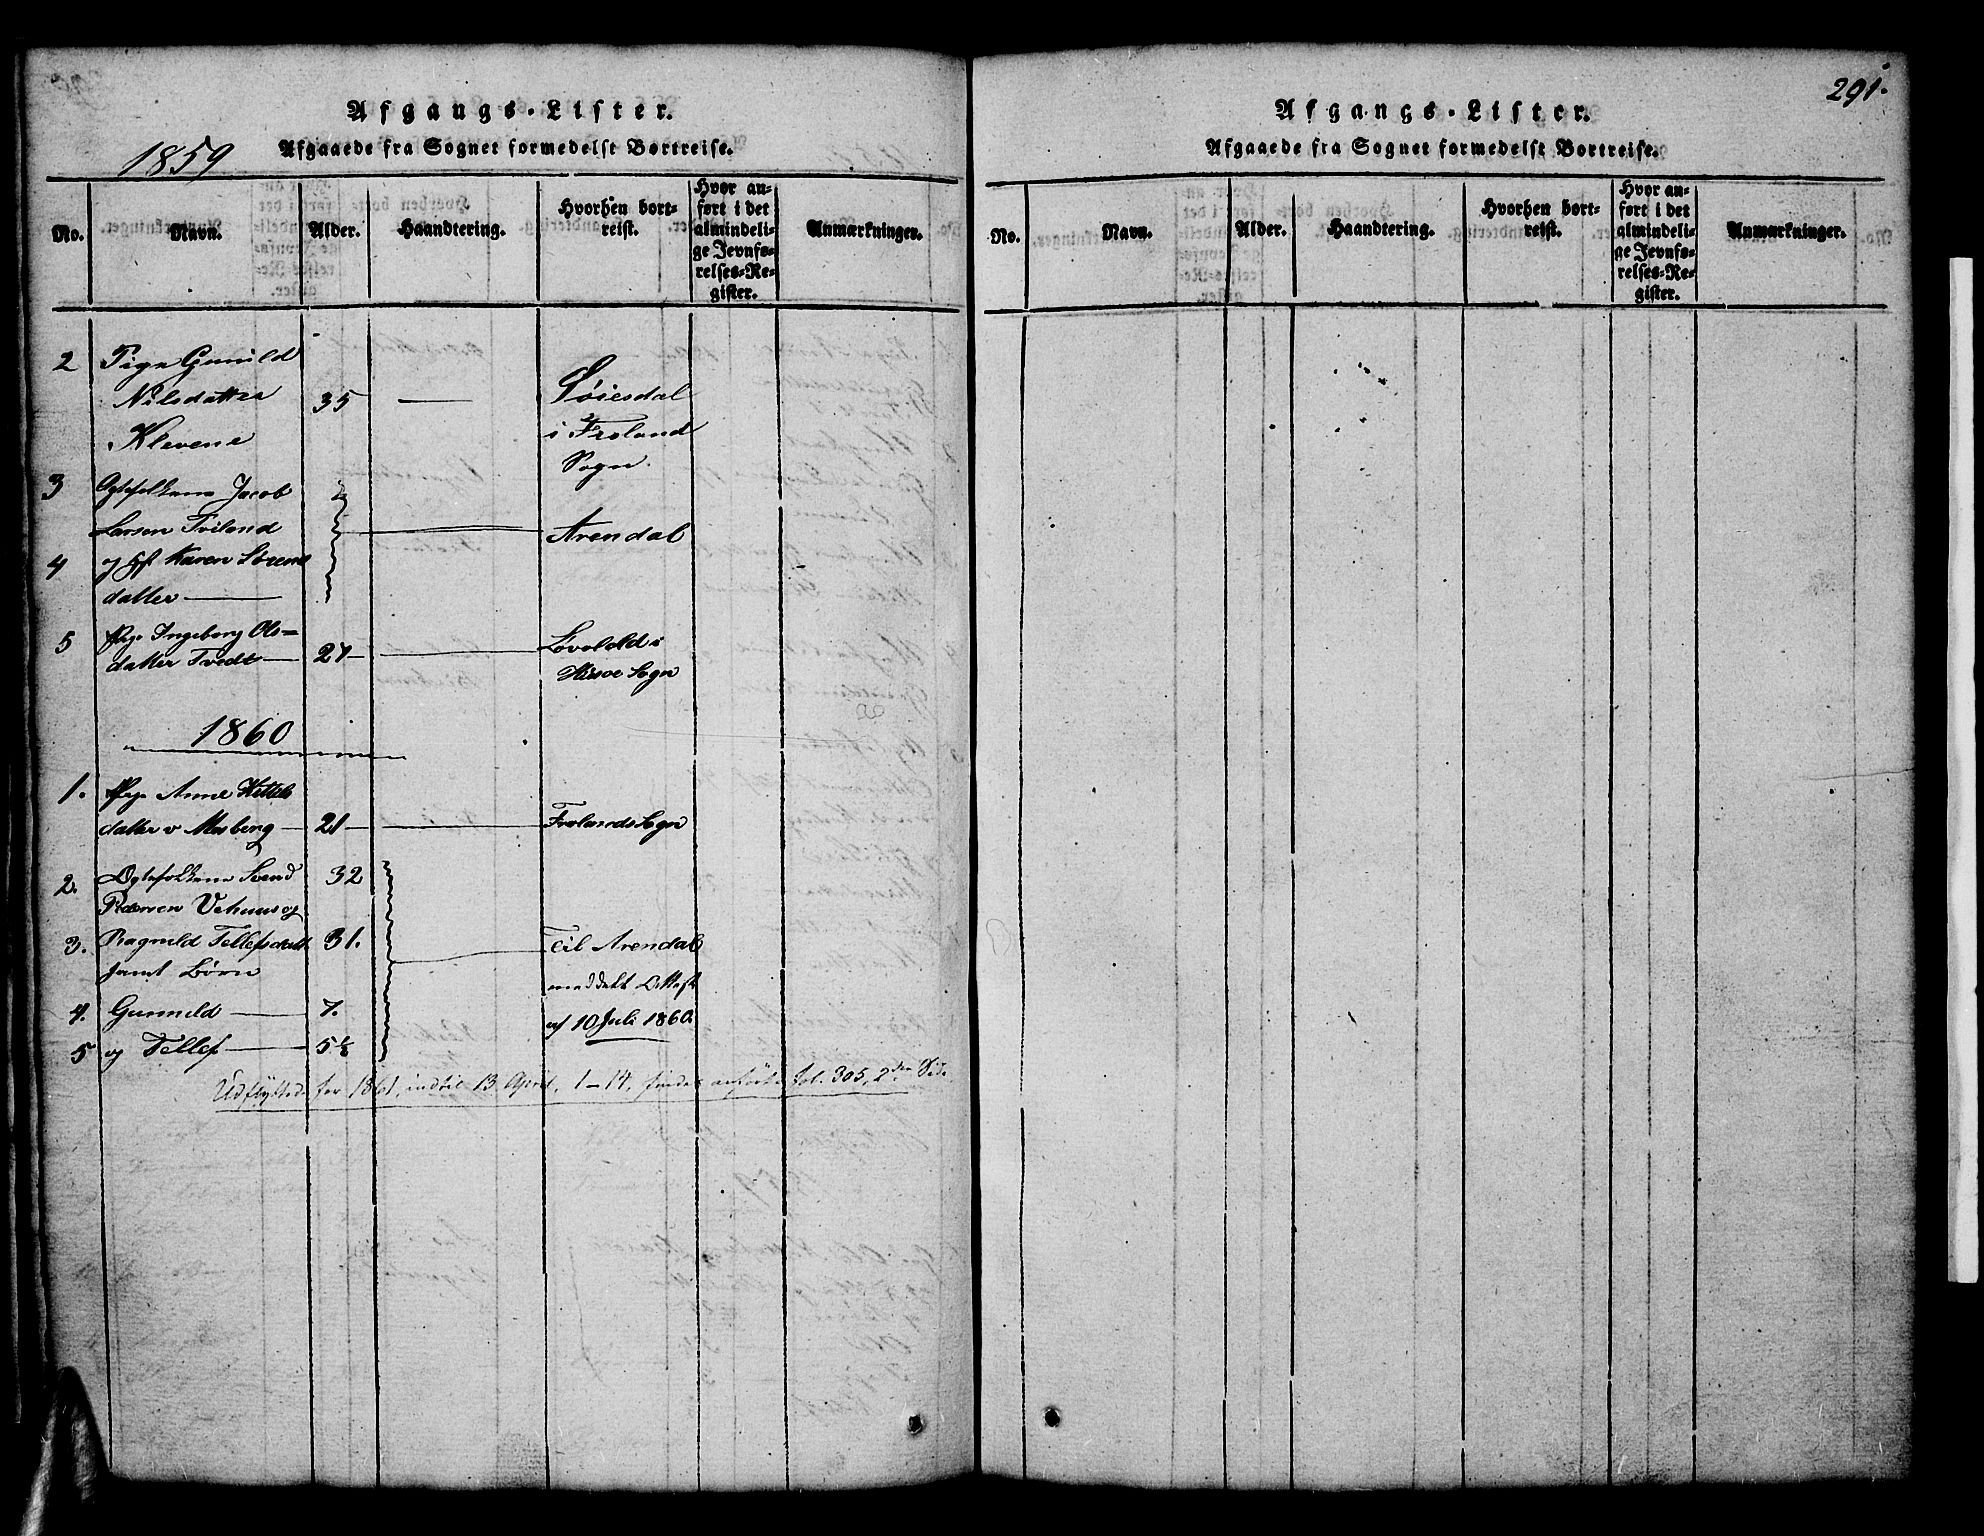 Afgangs-Lister.
1859
Afgaaede fra Sognet formedelst Bortreise.
No.
Navn.
Alder.
Haandtering.
Hvorhen bort-
reist.
Hvor an-
ført i det
almindeli-
ge Jevnfø-
relses-Re-
gister.
Anmærkninger.
2 Pige Gunild
Nilsdatter 35 — Søiesdal
Klevene i Froland
Sogn.
3 Ægtefolkene Jacob
Larsen Tveland — Arendal
4 og Karen Sørens
datter —
5 Pige Ingeborg Ols=
datter Tvedt — 27 — Løvold i
Hisøe Sogn
1860
1. Pige Anne Kittels
datter v Mosberg — 21 — Frolands Sogn
2. Ægtefolkene Svend 32
Pedersen Vehuus og
3. Ragnild Tellefsdatt 31. Til Arendal
samt Børn meddelt Attest
4. Gunnild — 7. af 10 Juli 1860.
5 og Tellef — 5½
Udflyttede for 1861, indtil 13 April, 1-14, findes anførte fol. 305, 2den Side
291.
Afgangs-Lister.
Afgaaede fra Sognet formedelst Bortreise.
No.
Navn.
Alder.
Haandtering.
Hvorhen bort-
reist.
Hvor an-
ført i det
almindeli-
ge Jevnfø-
relses-Re-
gister.
Anmærkninger.